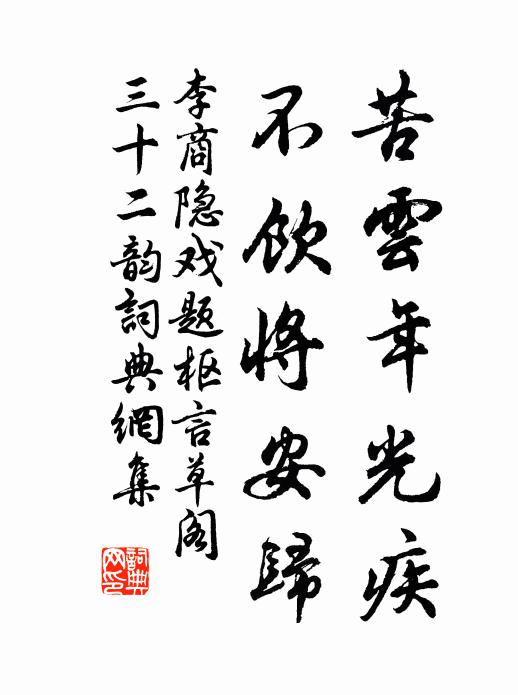 苦雲年光疾
不飲將安歸
李商隐戏题枢言草阁
三十二韵詞典網集
詞典网印